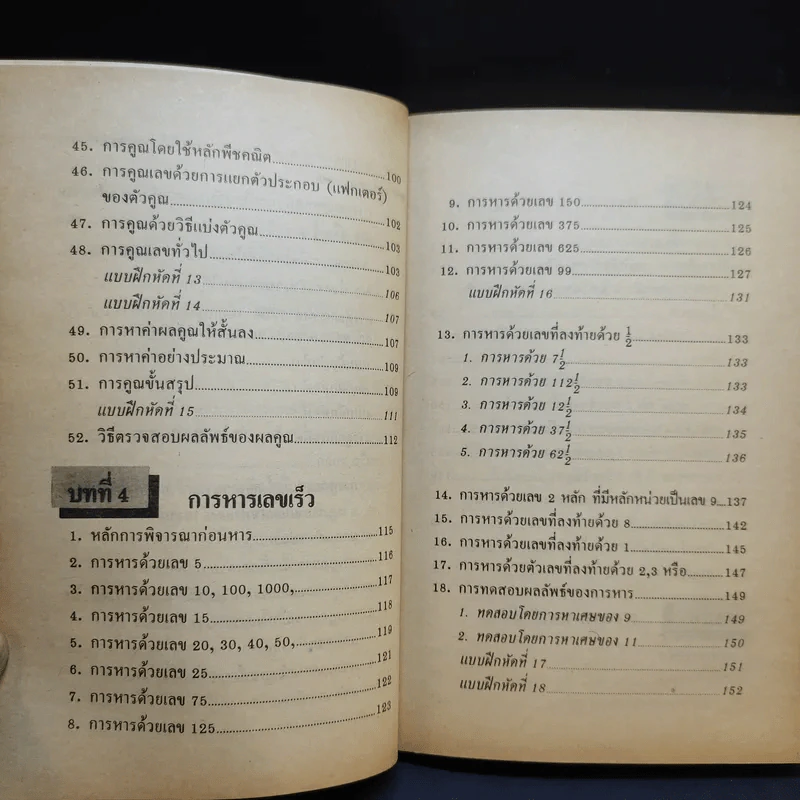 45. การคูณโดยใช้หลักพีชคณิต 100
46. การคูณเลขด้วยการแยกตัวประกอบ (แฟกเตอร์)
ของตัวคูณ 102
47. การคูณด้วยวิธีแบ่งตัวคูณ 103
48. การคูณเลขทั่วไป 103
แบบฝึกหัดที่ 13 106
แบบฝึกหัดที่ 14 107
49. การหาค่าผลคูณให้สั้นลง 107
50. การหาค่าอย่างประมาณ 109
51. การคูณขั้นสรุป 109
แบบฝึกหัดที่ 15 111
52. วิธีตรวจสอบผลลัพธ์ของผลคูณ 112
บทที่ 4 การหารเลขเร็ว
1. หลักการพิจารณาก่อนหาร 115
2. การหารด้วยเลข 5 116
3. การหารด้วยเลข 10, 100, 1000, 117
4. การหารด้วยเลข 15 118
5. การหารด้วยเลข 20, 30, 40, 50, 119
6. การหารด้วยเลข 25 121
7. การหารด้วยเลข 75 122
8. การหารด้วยเลข 125 123
9. การหารด้วยเลข 150 124
10. การหารด้วยเลข 375 125
11. การหารด้วยเลข 625 126
12. การหารด้วยเลข 99 127
แบบฝึกหัดที่ 16 131
13. การหารด้วยเลขที่ลงท้ายด้วย ½ 133
1. การหารด้วย 7½ 133
2. การหารด้วย 112½ 133
3. การหารด้วย 12½ 134
4. การหารด้วย 37½ 135
5. การหารด้วย 62½ 136
14. การหารด้วยเลข 2 หลัก ที่มีหลักหน่วยเป็นเลข 9 137
15. การหารด้วยเลขที่ลงท้ายด้วย 8 142
16. การหารด้วยเลขที่ลงท้ายด้วย 1 145
17. การหารด้วยตัวเลขที่ลงท้ายด้วย 2,3 หรือ 147
18. การทดสอบผลลัพธ์ของการหาร 149
1. ทดสอบโดยการหาเศษของ 9 149
2. ทดสอบโดยการหาเศษของ 11 150
แบบฝึกหัดที่ 17 151
แบบฝึกหัดที่ 18 152